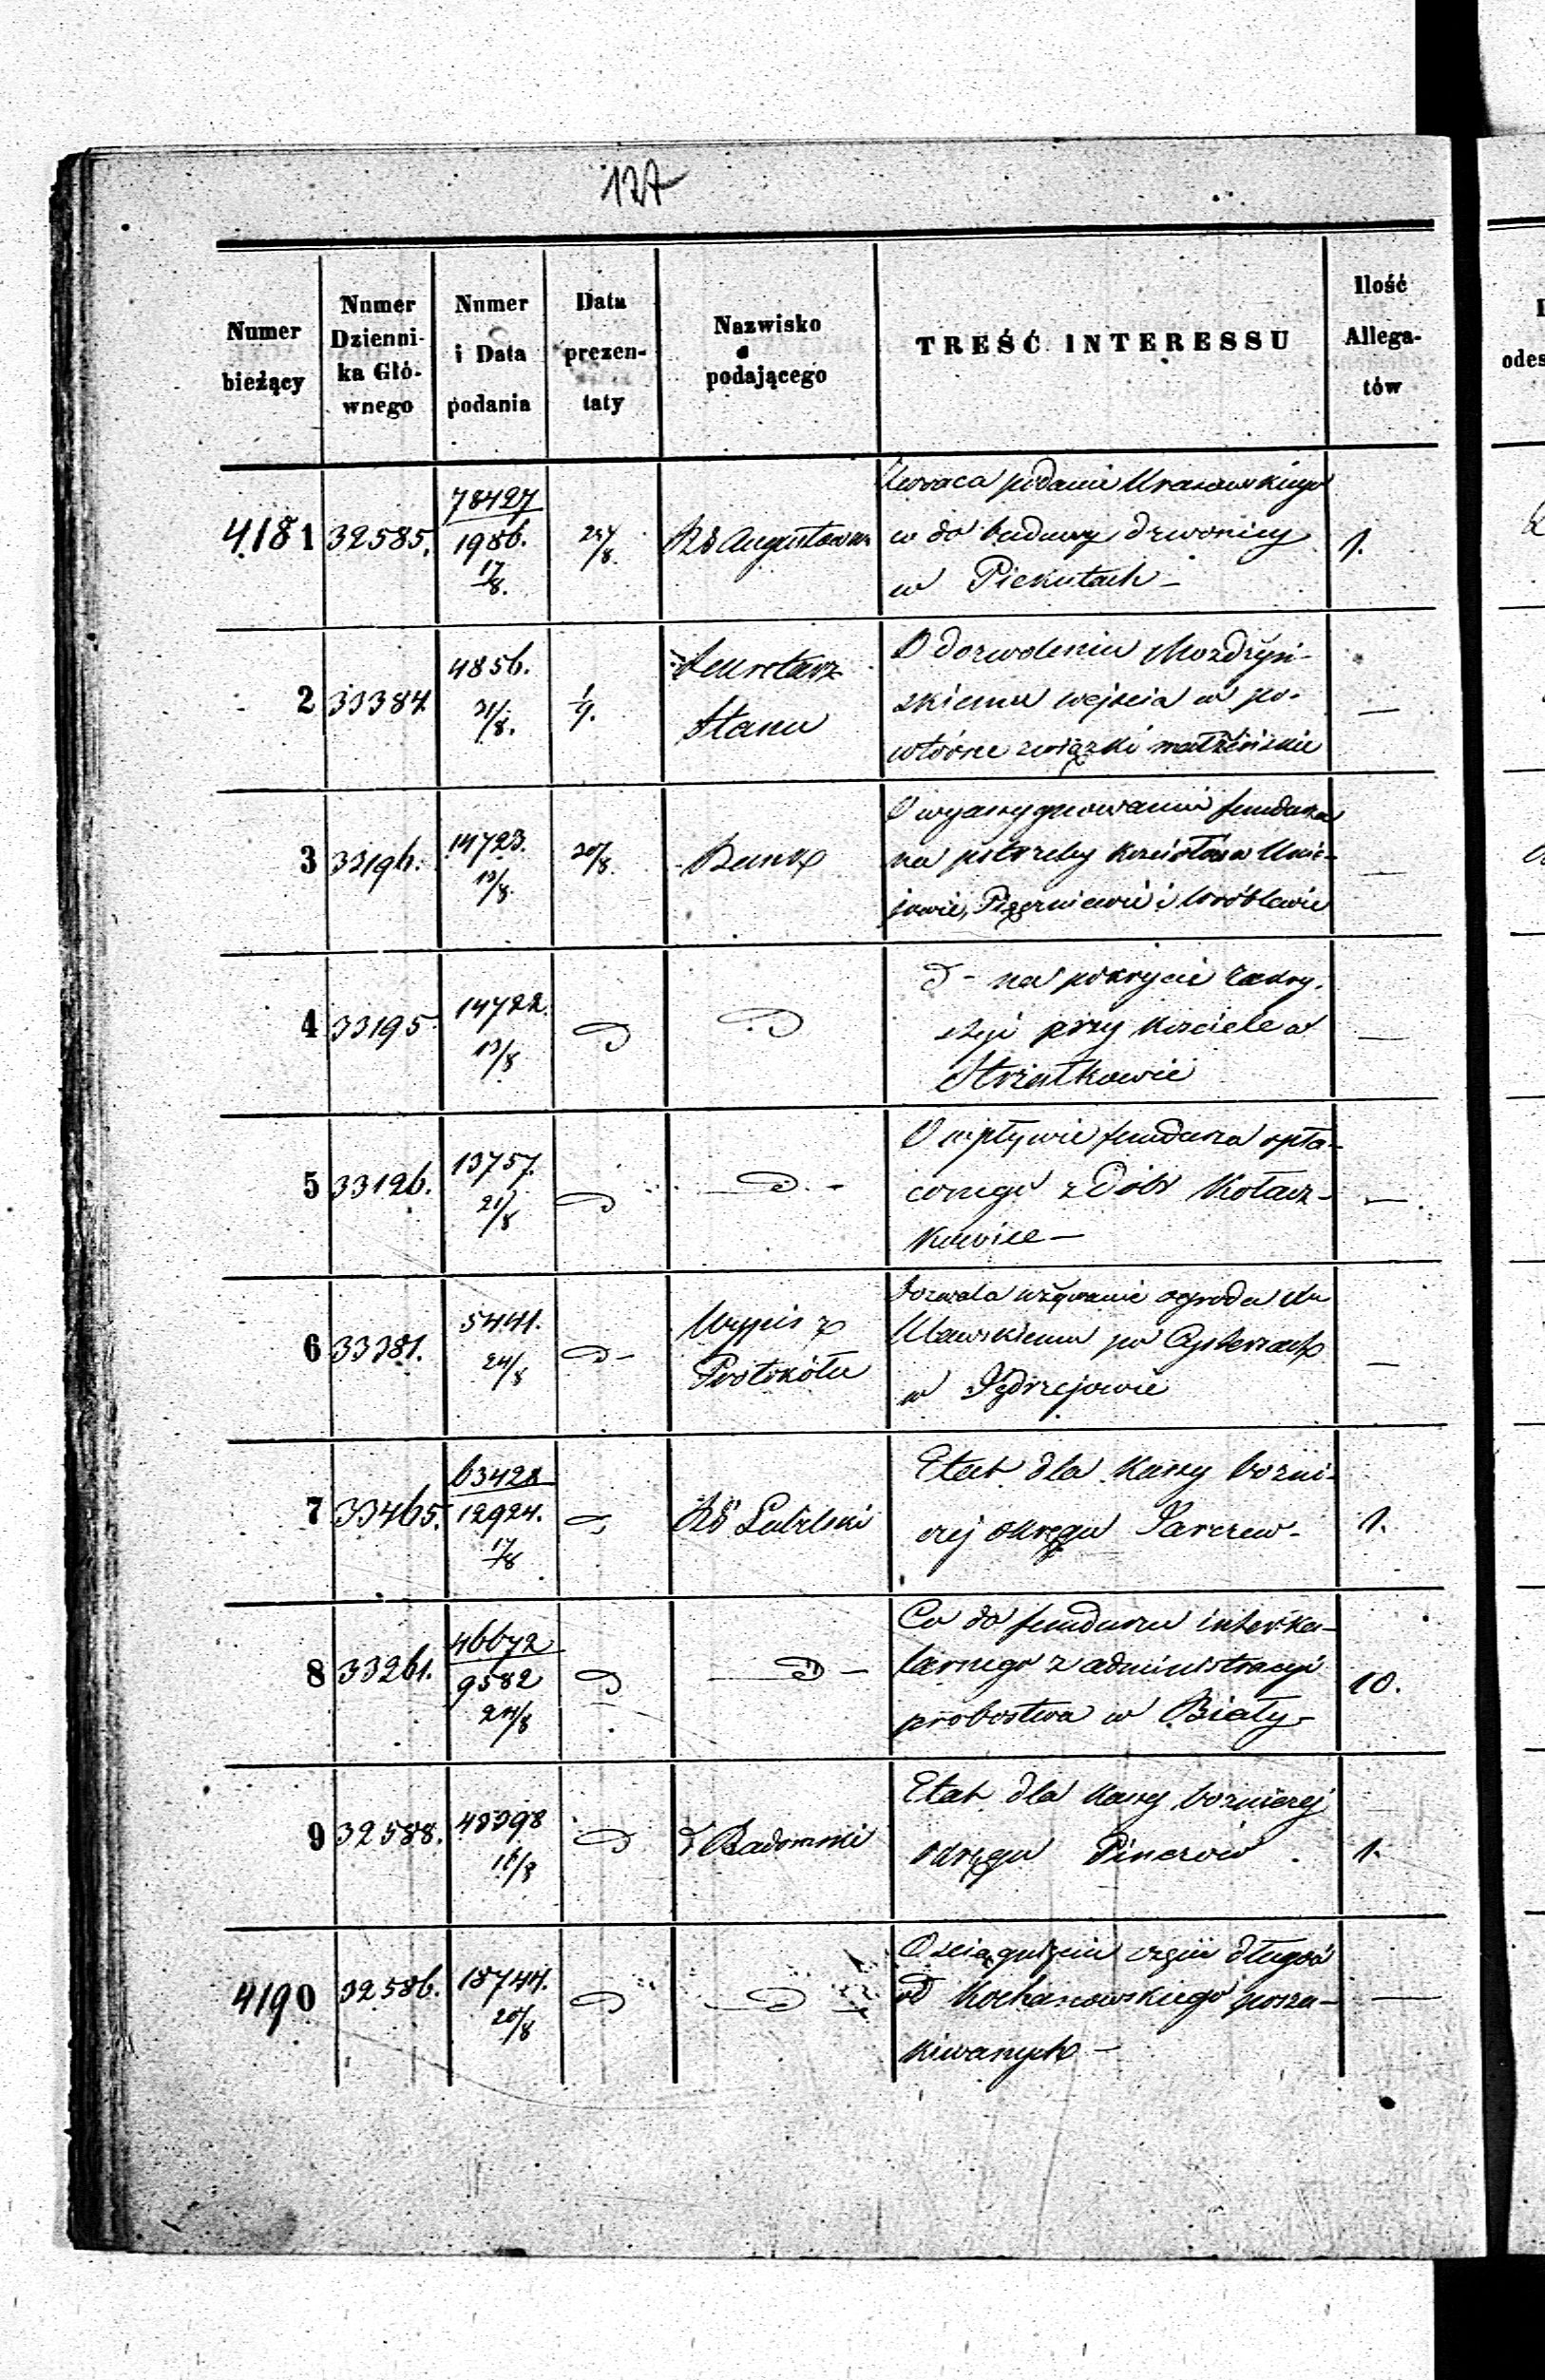 127
Numer bieżący
Numer Dzienni- ka Głó- wnego
Numer i Data podania
Data prezen- taty
Nazwisko podającego
TREŚĆ INTERESSU
Ilość Allega- tów
4181 32585. 78427 1986. 17/8. 27/8. RG Augustowsk
Zwraca podanie Krasowskiego
w do budowy dzwonicy
w Piekutach — 1.
2 33384 4856. 31/8. 1/9. Sekretarz Stanu
O dozwoleniu Mozdżyń-
skiemu wejścia w po-
wtórne związki małżeńskie —
3 33196. 14723. 13/8. 20/8. Bank
O wyassygnowaniu fundusza
na potrzeby kościołów w Unie-
jowie, Pięczniewie i Wróblewie —
4 33195 14722. 13/8 D D
D - na pokrycie zakry-
styi przy kościele w
Strzałkowie —
5 33126. 13757. 21/8 D D. -
O wpływie fundusza spła-
conego z Dóbr Kołacz-
kowice — —
6 33381. 5441. 24/8 D - Wypis z Protokółu
Dozwala używanie ogrodu
po Cystersach
w Jędrzejowie —
7 33465. 63428 12924. 17/8 D RG Lubelski
Etat dla Kassy bożni-
czej okręgu Parczew - 1.
8 33261. 46672 9582 24/8 D D —
Co do funduszu interka-
larnego z administracyi
probostwa w Biały - 10.
9 32588. 48398 16/8 D Radomski
Etat dla Kassy bożniczej
okręgu Pinczów . 1.
4190 32586. 18744. 20/8 D D
O ściągnięciu części długów
od Kochanowskiego poszu-
kiwanych — —